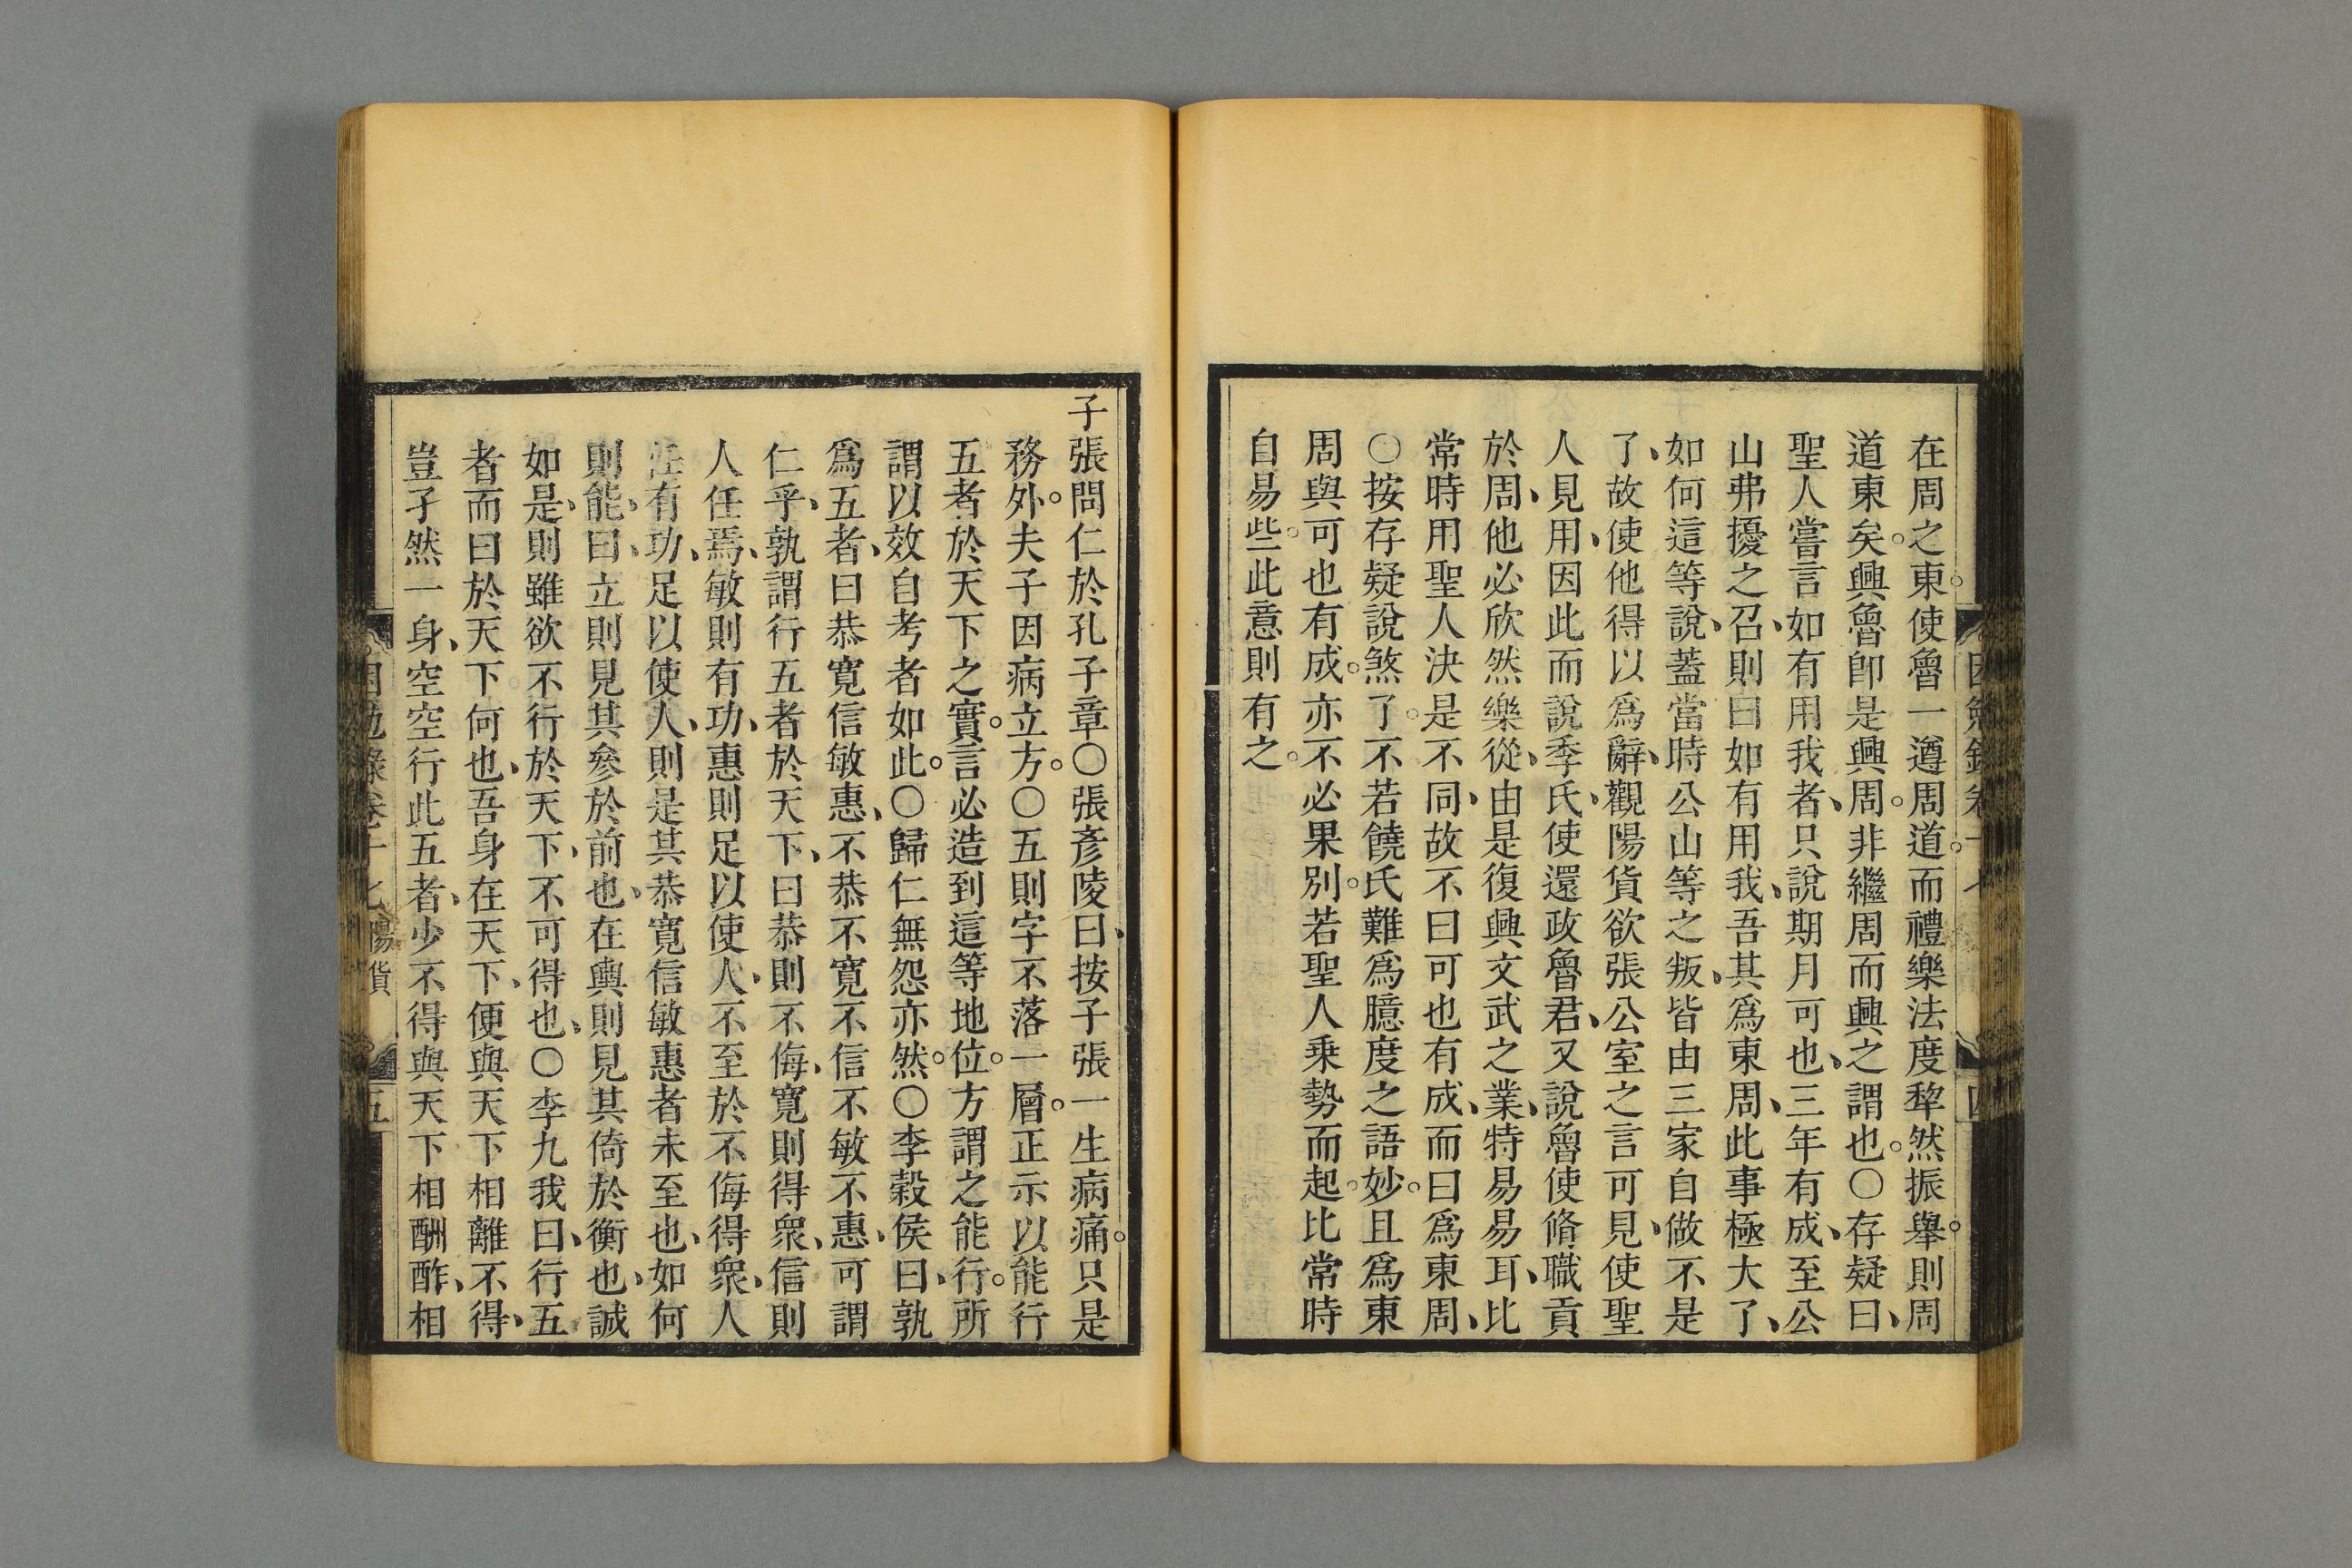 在周之東。使魯一遵周道。而禮樂法度犂然振舉。則周
道東矣。興魯卽是興周。非繼周而興之謂也。〇存疑曰、
聖人嘗言如有用我者、只說期月可也、三年有成、至公
山弗擾之召、則曰如有用我、吾其爲東周、此事極大了、
如何這等說、蓋當時公山等之叛、皆由三家自做不是
了、故使他得以爲辭、觀陽貨欲張公室之言可見、使聖
人見用、因此而說季氏、使還政魯君、又說魯使脩職貢
於周、他必欣然樂從、由是復興文武之業、特易易耳、比
常時用聖人決是不同、故不曰可也有成、而曰爲東周、
〇按存疑說煞了。不若饒氏難爲臆度之語妙。且爲東
周與可也有成。亦不必果別。若聖人乗勢而起。比常時
自易些。此意則有之。
子張問仁於孔子章〇張彥陵曰、按子張一生病痛。只是
務外。夫子因病立方。〇五則字不落一層。正示以能行
五者於天下之實。言必造到這等地位。方謂之能行。所
謂以效自考者如此。〇歸仁無怨亦然。〇李穀侯曰、孰
爲五者、曰恭寬信敏惠、不恭不寬不信不敏不惠、可謂
仁乎、孰謂行五者於天下、曰恭則不侮、寬則得衆、信則
人任焉、敏則有功、惠則足以使人、不至於不侮得衆、人
任有功、足以使人、則是其恭寬信敏惠者未至也、如何
則能、曰、立則見其參於前也、在輿則見其倚於衡也、誠
如是、則雖欲不行於天下、不可得也、〇李九我曰、行五
者而曰於天下。何也、吾身在天下、便與天下相離不得、
豈孑然一身、空空行此五者、少不得與天下相酬酢、相
困勉錄卷十七 陽貨 五